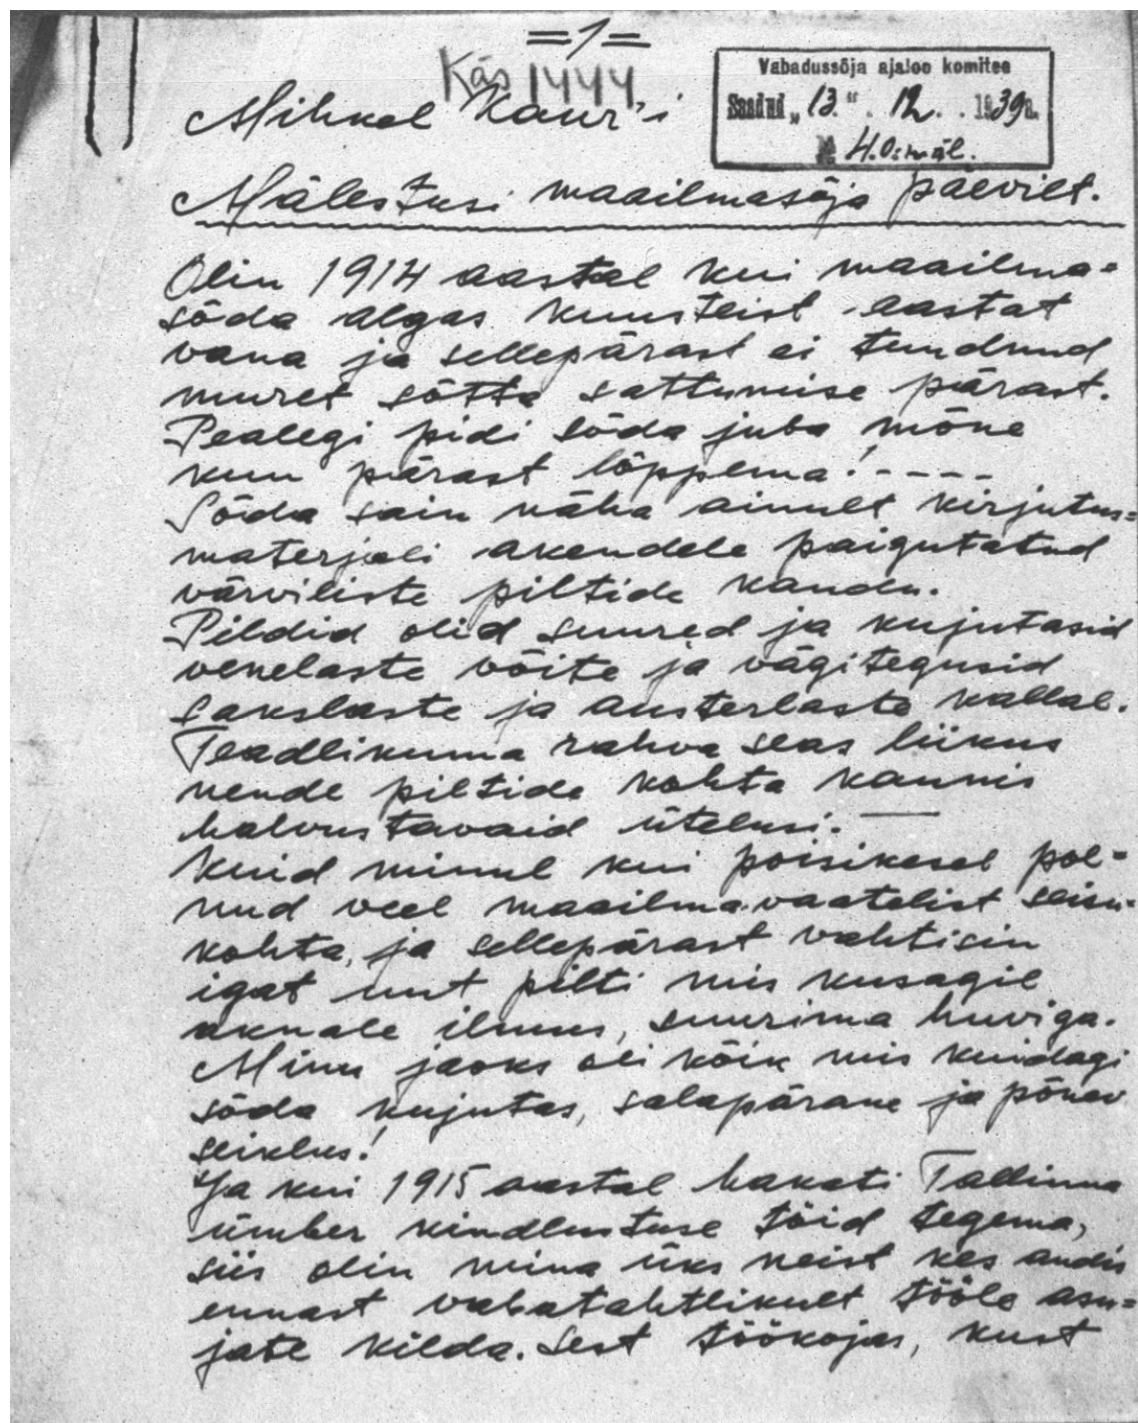 =1=
Käs 1444
Vabadussõja ajaloo komitee
Saadud „13“. 12. . 1939a.
4. O: mäl.
Mihkel Kaur'i
Mälestusi maailmasõja päevilt.
Olin 1914 aastal kui maailma=
sõda algas kuusteist aastat
vana ja sellepärast ei tundnud
muret sõtta sattumise pärast.
Pealegi pidi sõda juba mõne
kuu pärast lõppema! - - - -
Sõda sain näha ainult kirjutus=
materjali akendele paigutatud
värviliste piltide kaudu.
Pildid olid suured ja kujutasid
venelaste võite ja vägitegusid
sakslaste ja austerlaste kallal.
Teadlikuma rahva seas liikus
nende piltide kohta kaunis
halvustavaid ütelusi. —
Kuid minul kui poisikesel pol=
nud veel maailmavaatelist seisu=
kohta, ja sellepärast vahtisin
igat uut pilti mis kusagil
aknale ilmus, suurima huviga.
Minu jaoks oli kõik mis kuidagi
sõda kujutas, salapärane ja põnev
seiklus!
Ja kui 1915 aastal hakati Tallinna
ümber kindlustuse töid tegema,
siis olin mina üks neist kes andis
ennast vabatahtlikult tööle asu=
jate kilda. Sest töökojas, kust